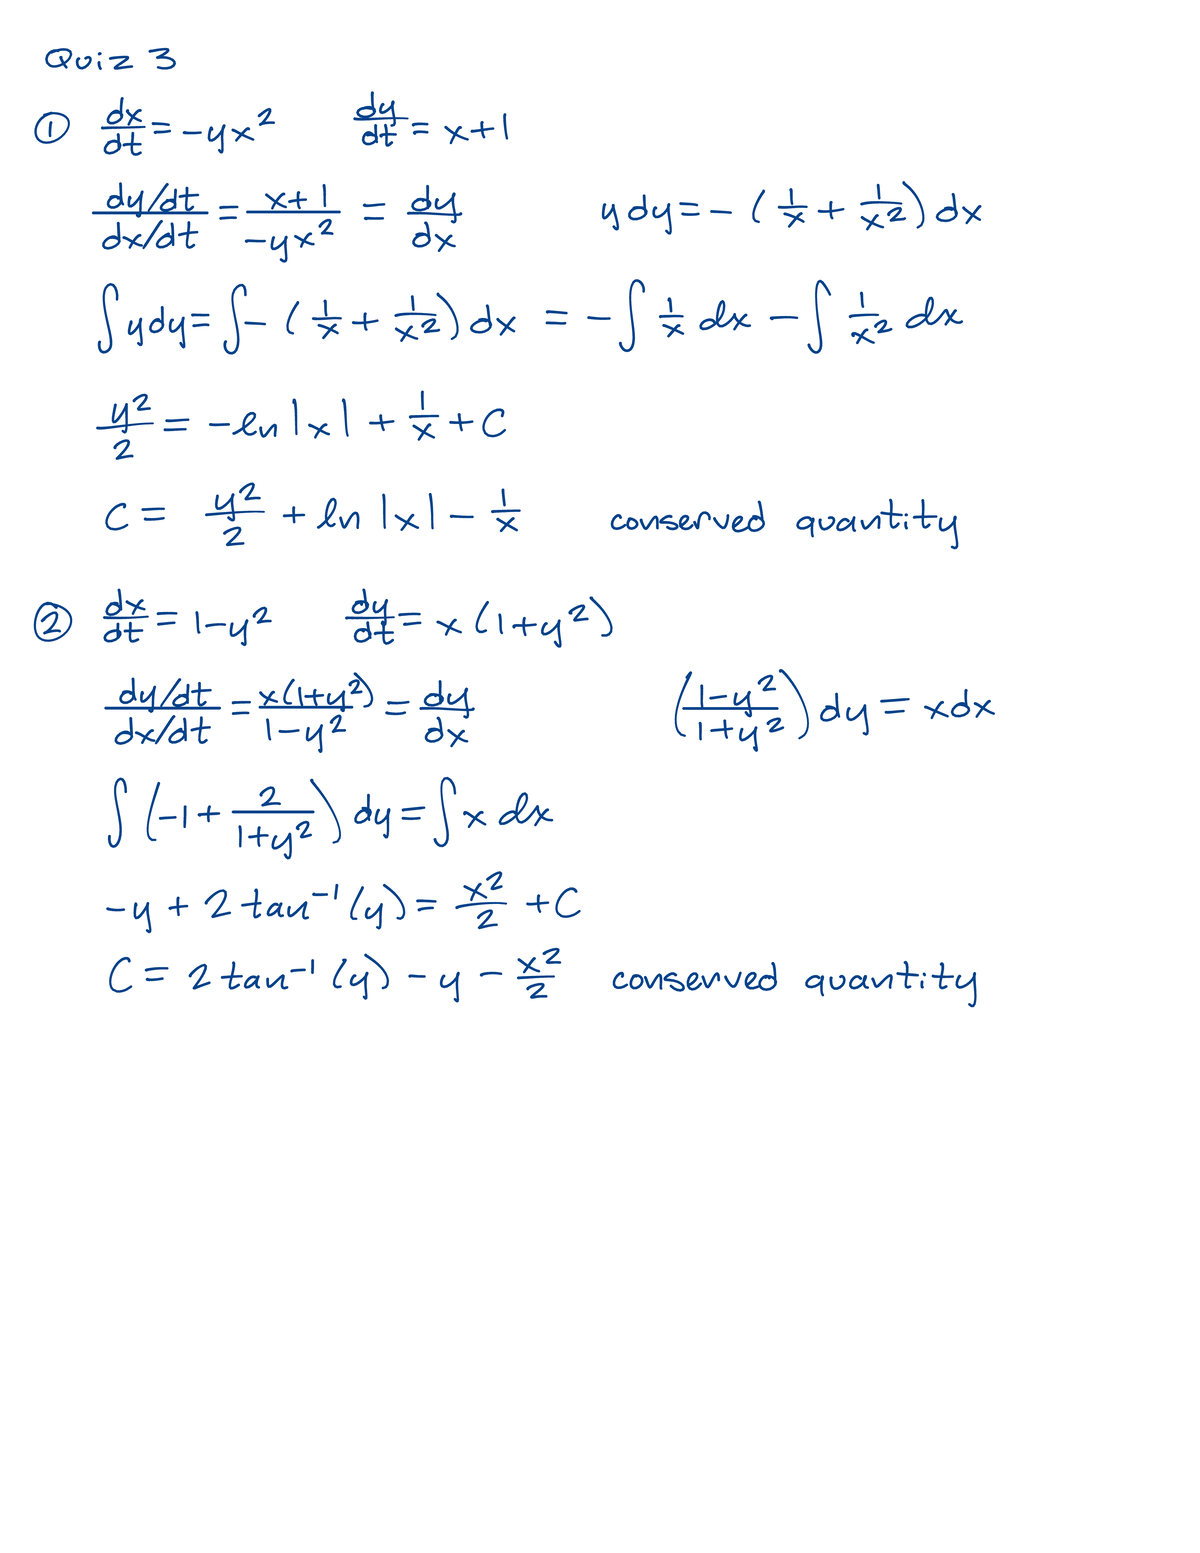 Quiz 3
① dx/dt = -yx² dy/dt = x+1
(dy/dt)/(dx/dt) = (x+1)/(-yx²) = dy/dx y dy = -(1/x + 1/x²) dx
∫ y dy = ∫ -(1/x + 1/x²) dx = -∫ 1/x dx - ∫ 1/x² dx
y²/2 = -ln|x| + 1/x + C
C = y²/2 + ln|x| - 1/x conserved quantity
② dx/dt = 1-y² dy/dt = x(1+y²)
(dy/dt)/(dx/dt) = x(1+y²)/(1-y²) = dy/dx ((1-y²)/(1+y²)) dy = x dx
∫ (-1 + 2/(1+y²)) dy = ∫ x dx
-y + 2 tan⁻¹(y) = x²/2 + C
C = 2 tan⁻¹(y) - y - x²/2 conserved quantity